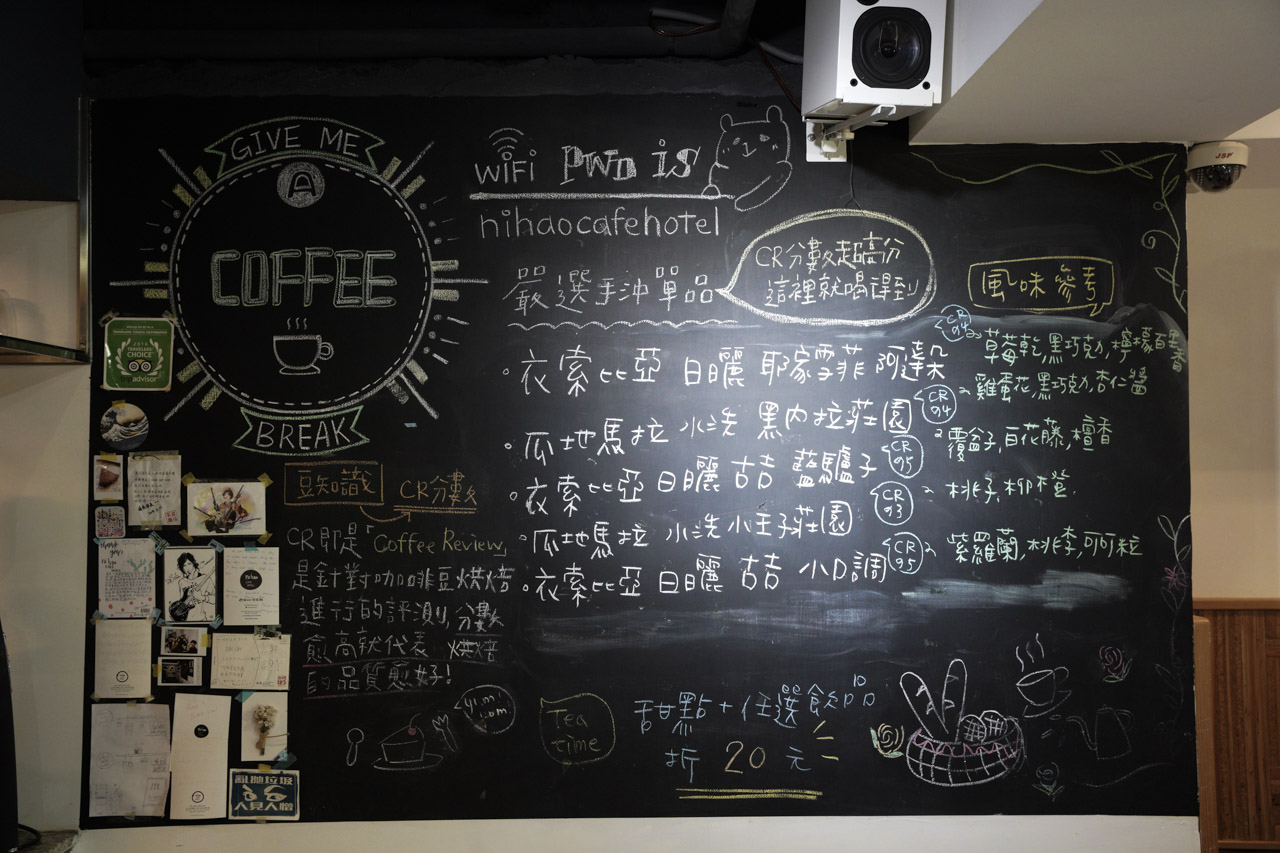 GIVE ME
A
COFFEE
BREAK
WiFi PWD is
nihaocafehotel
嚴選手沖單品
CR分數超高分
這裡就喝得到
風味參考
衣索比亞 日曬 耶家雪菲 阿達朵
CR 94
草莓乾,黑巧克力,檸檬百里香
瓜地馬拉 水洗 黑內拉莊園
CR 94
雞蛋花,黑巧克力,杏仁醬
衣索比亞 日曬 古吉 藍驢子
CR 95
覆盆子,百花藤,檀香
瓜地馬拉 水洗 小王子莊園
CR 93
桃子,柳橙
衣索比亞 日曬 古吉 小D調
CR 95
紫羅蘭,桃李,可可粒
豆知識
CR分數
CR即是「Coffee Review」
是針對咖啡豆烘焙
進行的評測,分數
愈高就代表 烘焙
的品質愈好!
Tea
time
甜點+任選飲品
折 20 元
2016
TRAVELERS'
CHOICE
tripadvisor
亂拋垃圾
人見人憎
JSP